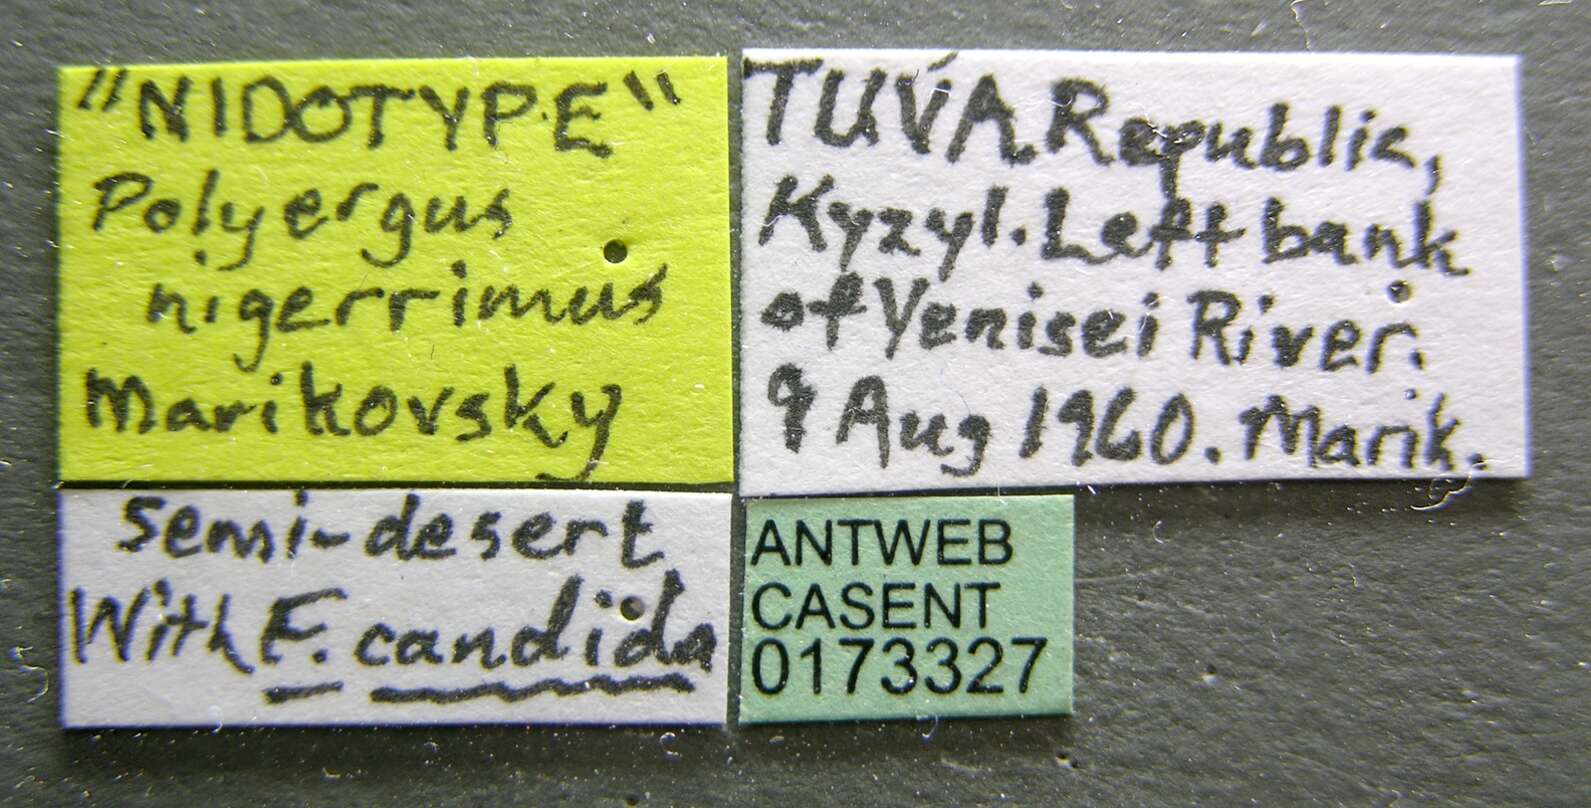 "NIDOTYPE"
Polyergus
nigerrimus
Marikovsky
TUVA. Republic,
Kyzyl. Left bank
of Yenisei River.
9 Aug 1960. Marik.
semi-desert
With F. candida
ANTWEB
CASENT
0173327